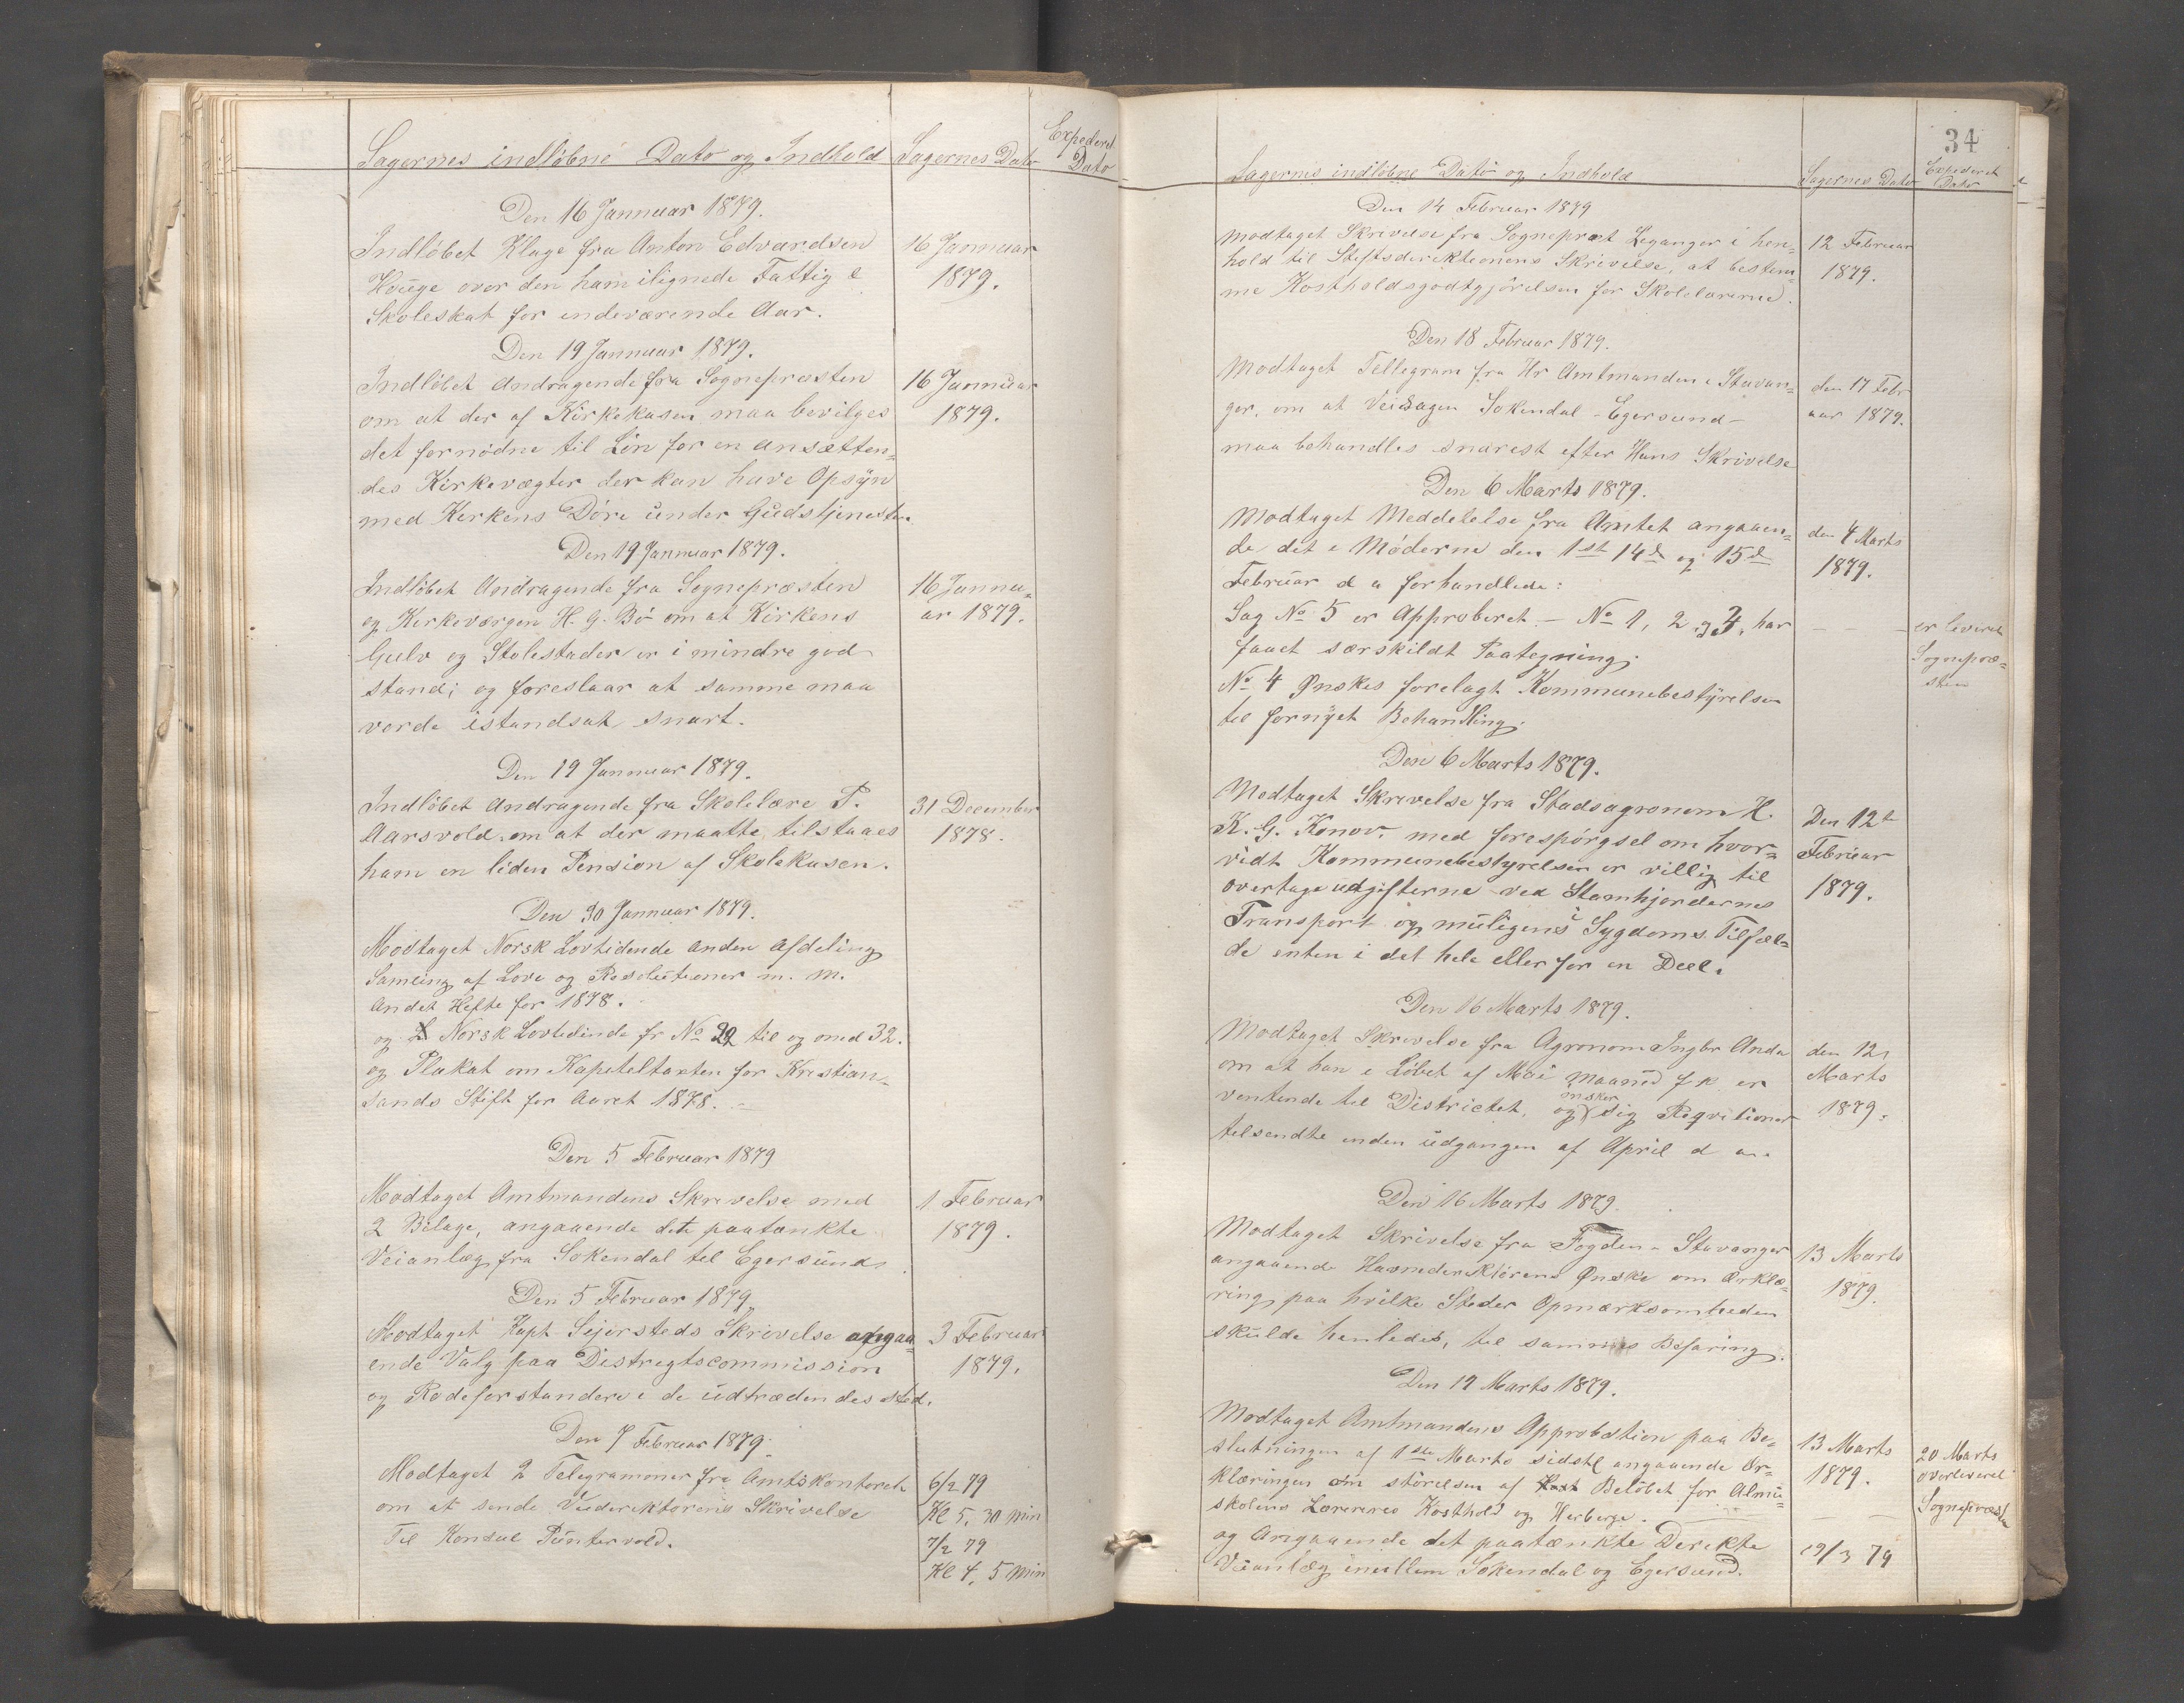 Sagernes indløbne Dato og Indhold
Sagernes Dato
Expederet
Dato
Den 16 Januar 1879.
Indløbet Klage fra Anton Edvardsen
16 Januar
Houge over den ham ilignede Fattig &
1879.
Skoleskat for indeværende Aar.
Den 19 Januar 1879.
Indløbet Andragende fra Sognepræsten
16 Januar
om at der af Kirkekasen maa bevilges
1879.
det fornødne til Løn for en ansætten=
des Kirkevægter der kan have Opsyn
med Kirkens Døre under Gudstjenesten.
Den 19 Januar 1879.
Indløbet Andragende fra Sognepræsten
16 Janu=
og Kirkeværgen H. G. Bø om at Kirkens
ar 1879.
Gulv og Stolestader er i mindre god
stand; og foreslaar at samme maa
vorde istandsat snart.
Den 19 Januar 1879.
Indløbet Andragende fra Skolelære P.
31 December
Aarsvold om at der maatte tilstaaes
1878.
ham en liden Pension af Skolekasen.
Den 30 Januar 1879.
Modtaget Norsk Lovtidende anden Afdeling
Samling af Love og Resolutioner m. m.
Andet Hefte for 1878.
og Norsk Lovtidende fr No 29 til og med 32.
og Plakat om Kapiteltaxten for Kristian=
sands Stift for Aaret 1878.
Den 5 Februar 1879
Modtaget Amtmandens Skrivelse med
1 Februar
2 Bilage, angaaende det paatænkte
1879.
Veianlæg fra Sokendal til Egersund
Den 5 Februar 1879
Modtaget Kapt Sejersteds Skrivelse angaa=
3 Februar
ende Valg paa Distrigtscommission
1879.
og Rodeforstandere i de udtrædendes sted.
Den 7 Februar 1879.
Modtaget 2 Telegrammer fra Amtskontoret
6/2 79
om at sende Veidirektørens Skrivelse
Kl 5, 30 Min
Til Konsul Puntervold.
7/2 79
Kl 4, 5 Min
34
Sagernes indløbne Dato og Indhold
Sagernes Dato
Expederet
Dato
Den 14 Februar 1879
Modtaget Skrivelse fra Sogneprest Leganger i hen=
12 Februar
hold til Stiftsdirektionens Skrivelse, at bestem=
1879.
me Kostholdsgodtgjørelsen for Skolelærerne.
Den 18 Februar 1879.
Modtaget Tellegram fra Hr Amtmanden i Stavan=
den 17 Febr
ger, om at Veisagen Sokendal - Egersund -
uar 1879.
maa behandles snarest efter Hans Skrivelse
Den 6 Marts 1879.
Modtaget Meddelelse fra Amtet angaaen=
den 4 Marts
de det i Møderne den 1st 14d og 15d
1879.
Februar d a forhandlede:
Sag No 5 er Approberet - No 1, 2 og 3, har
er leveret
faaet særskildt Paategning;
Sognepræ=
No 4 Ønskes forelagt Kommunebestyrelsen
sten
til fornyet Behandling.
Den 6 Marts 1879.
Modtaget Skrivelse fra Stadsagronom H.
Den 12t
K. G. Konov. med forespørgsel om hvor=
Februar
vidt Kommunebestyrelsen er villig til
1879.
overtage udgifterne ved Stamhjordernes
Transport og muligens i Sygdoms Tilfæl=
de enten i det hele eller for en Deel.
Den 16 Marts 1879.
Modtaget Skrivelse fra Agronom Ingbr Anda
den 12
om at han i Løbet af Mai maaned f k er
Marts
ventende til Districtet, og ønsker sig Reqvitioner
1879.
tilsendte inden udgangen af April d a.
Den 16 Marts 1879.
Modtaget Skrivelse fra Fogden i Stavanger
13 Marts
angaaende Havnedirektørens Ønske om Erklæ=
1879.
ring paa hvilke Steder Opmærksomheden
skulde henledes, til sammes Befaring.
Den 19 Marts 1879.
Modtaget Amtmandens Approbation paa Be=
13 Marts
20 Marts
slutningen af 1ste Marts sidstl angaaende Er=
1879.
overleveret
klæringen om størelsen af Beløbet for Almu=
Sognepræsten
skolens Læreres Kosthold og Herberge.
og Angaaende det paatænkte Derekte
19/3 79
Veianlæg imellem Sokendal og Egersund.